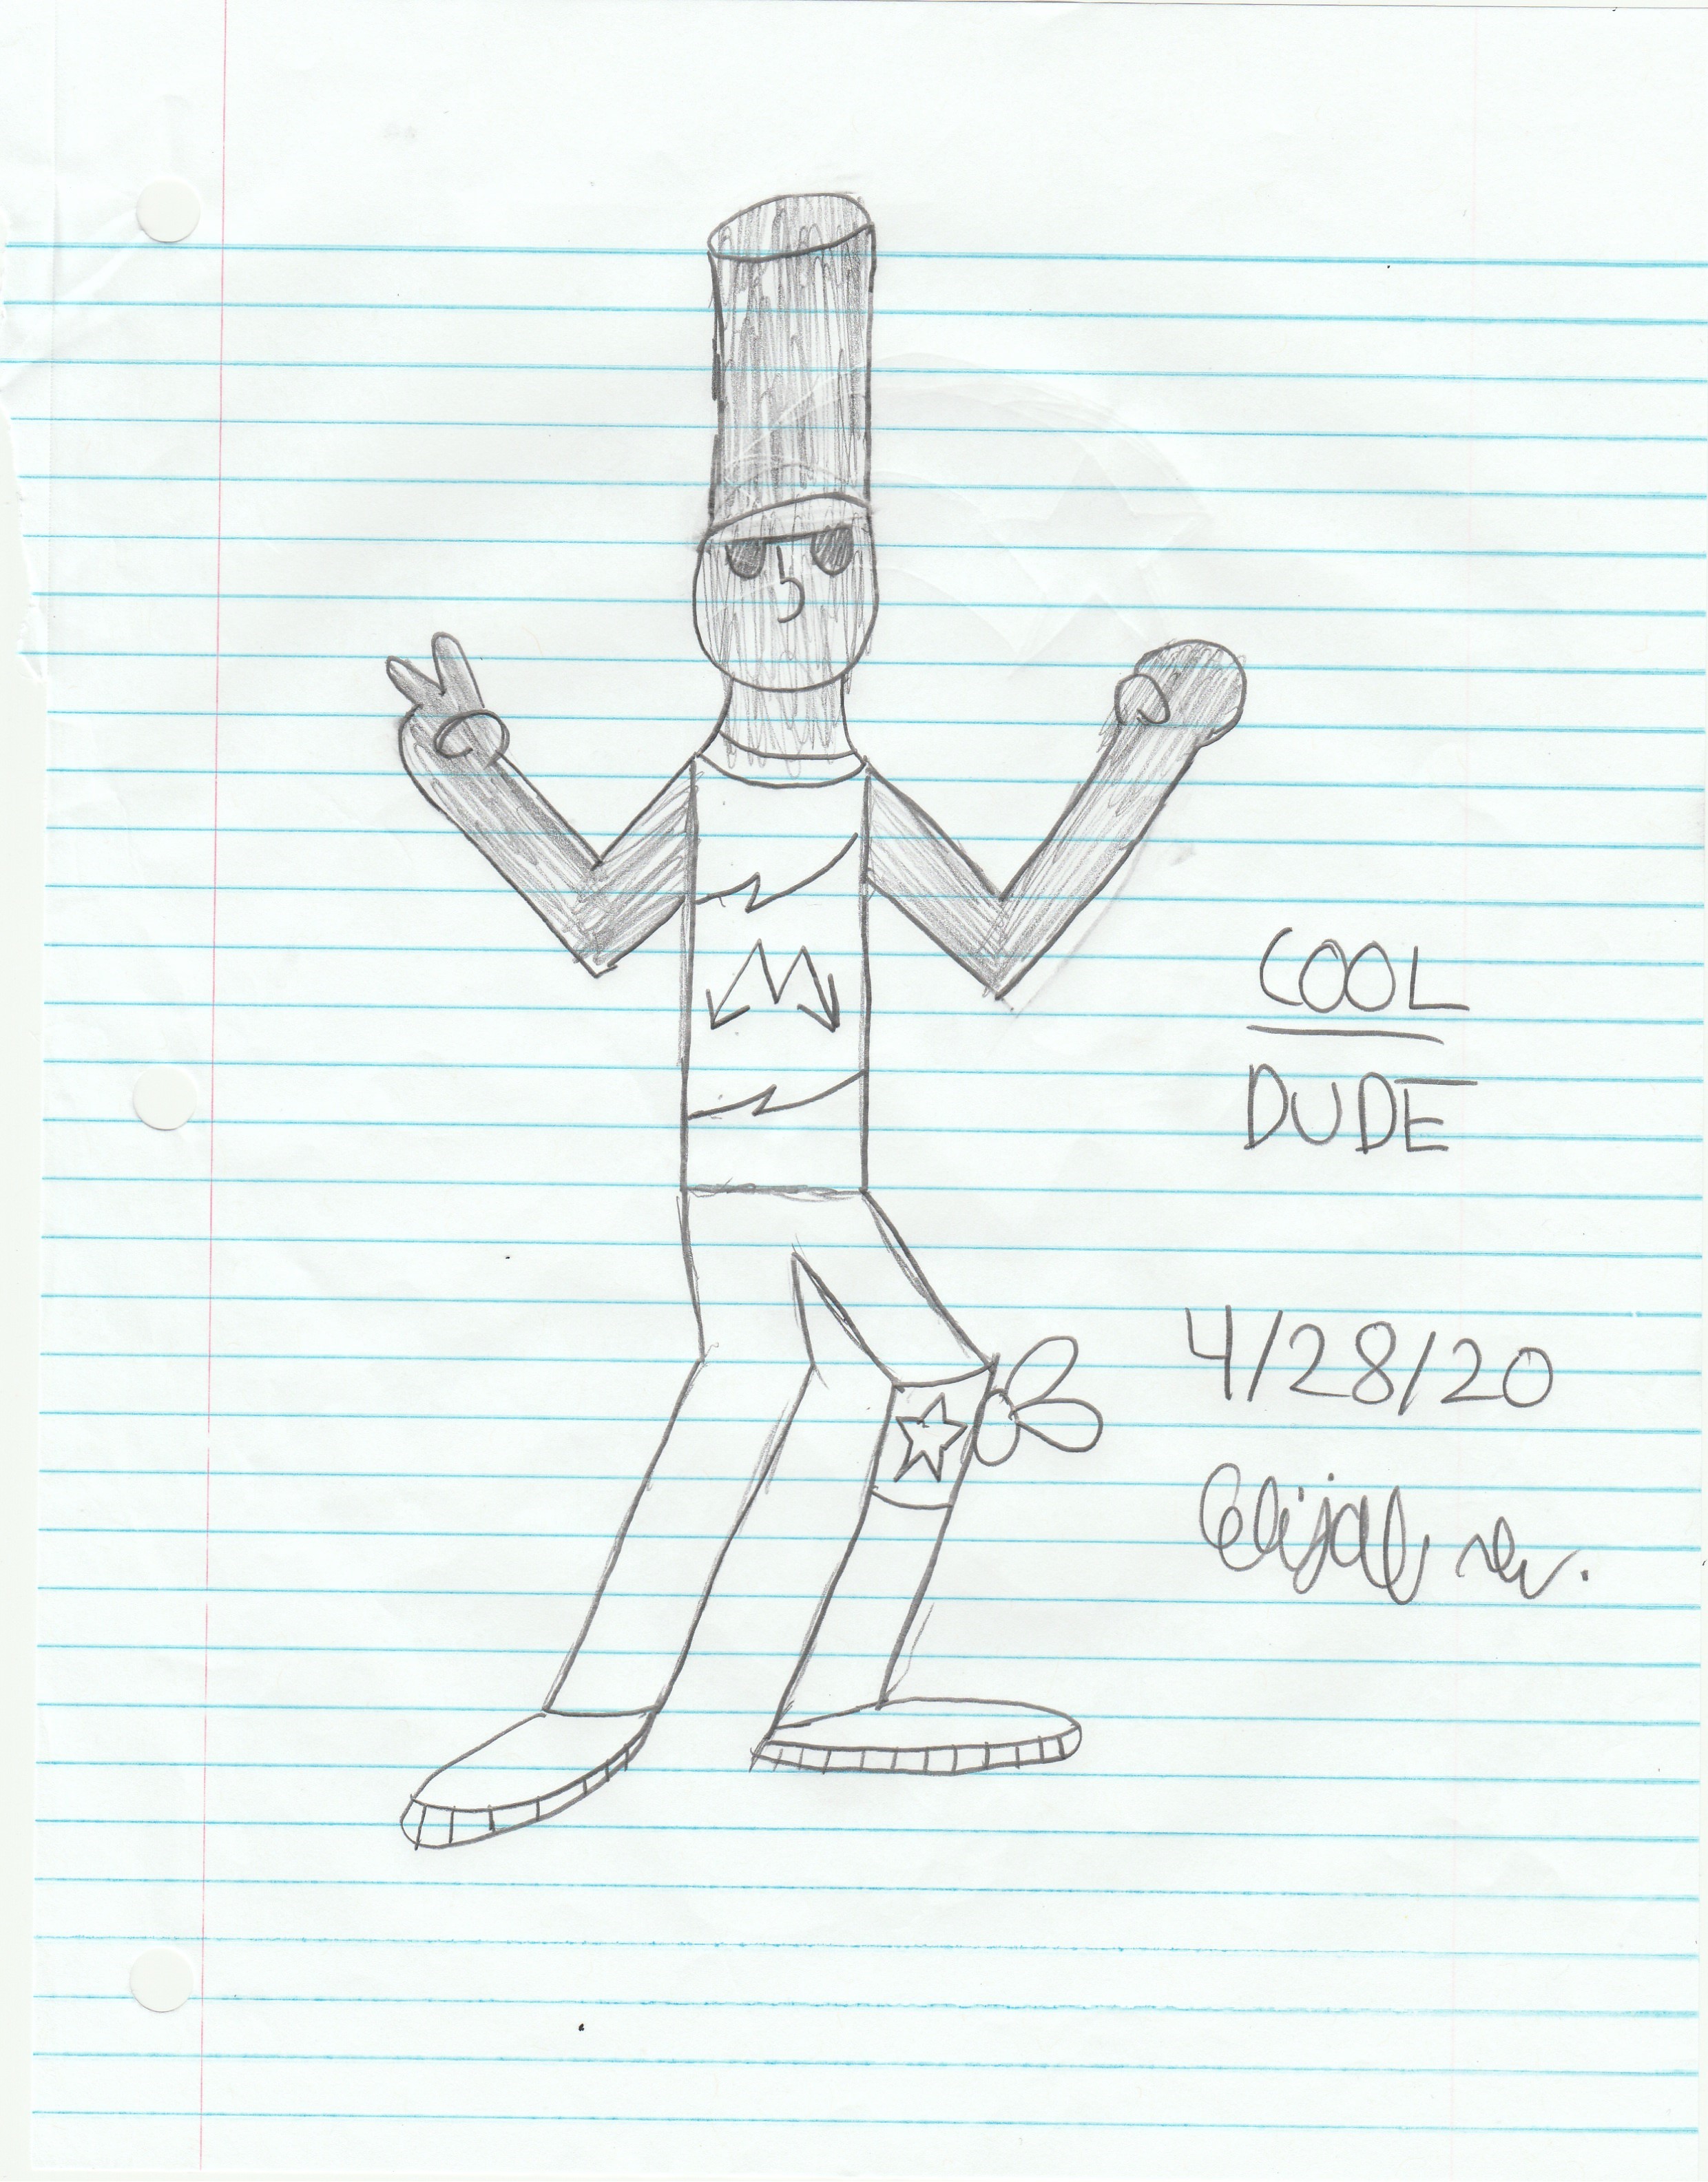 M
COOL
DUDE
4/28/20
Elijah